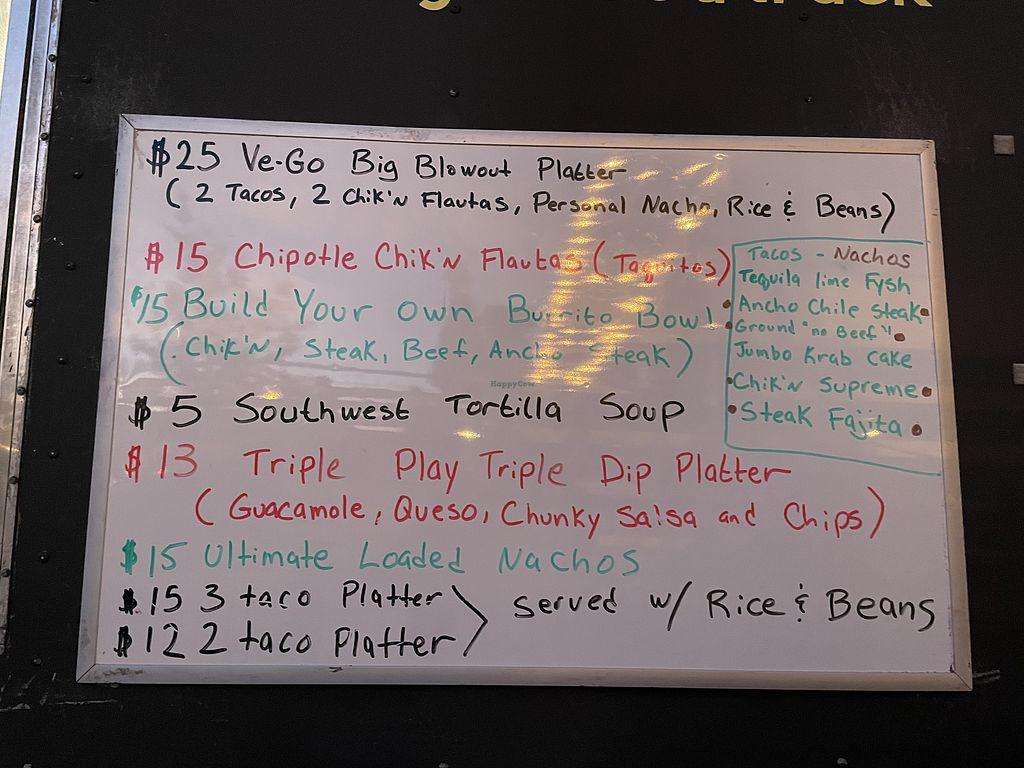 $25 Ve-Go Big Blowout Platter
(2 Tacos, 2 Chik'n Flautas, Personal Nacho, Rice & Beans)
$15 Chipotle Chik'n Flautas (Taquitos)
$15 Build Your Own Burrito Bowl
(Chik'n, Steak, Beef, Ancho Steak)
HappyCow
$5 Southwest Tortilla Soup
$13 Triple Play Triple Dip Platter
(Guacamole, Queso, Chunky Salsa and Chips)
$15 Ultimate Loaded Nachos
$15 3 taco Platter
$12 2 taco Platter
served w/ Rice & Beans
Tacos - Nachos
Tequila lime Fysh
• Ancho Chile Steak •
• Ground "no Beef" •
Jumbo Krab Cake
• Chik'n Supreme •
• Steak Fajita •